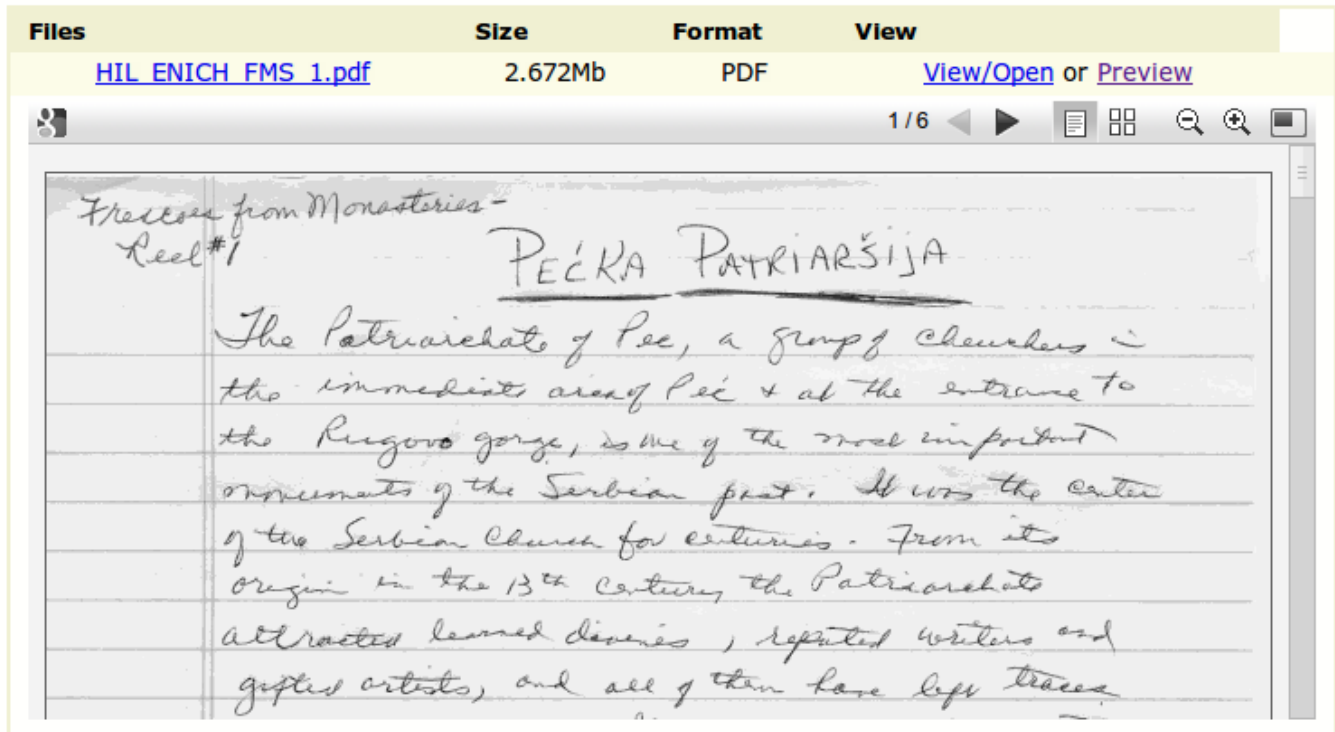 Files Size Format View
HIL_ENICH_FMS_1.pdf 2.672Mb PDF View/Open or Preview
1 / 6
Frescoes from Monasteries-
Reel #1
PEĆKA PATRIARŠIJA
The Patriarchate of Pec, a group of churches in
the immediate area of Peć & at the entrance to
the Rugovo gorge, is one of the most important
monuments of the Serbian past. It was the center
of the Serbian Church for centuries. From its
origin in the 13th century the Patriarchate
attracted learned divines, reputed writers and
gifted artists, and all of them have left traces